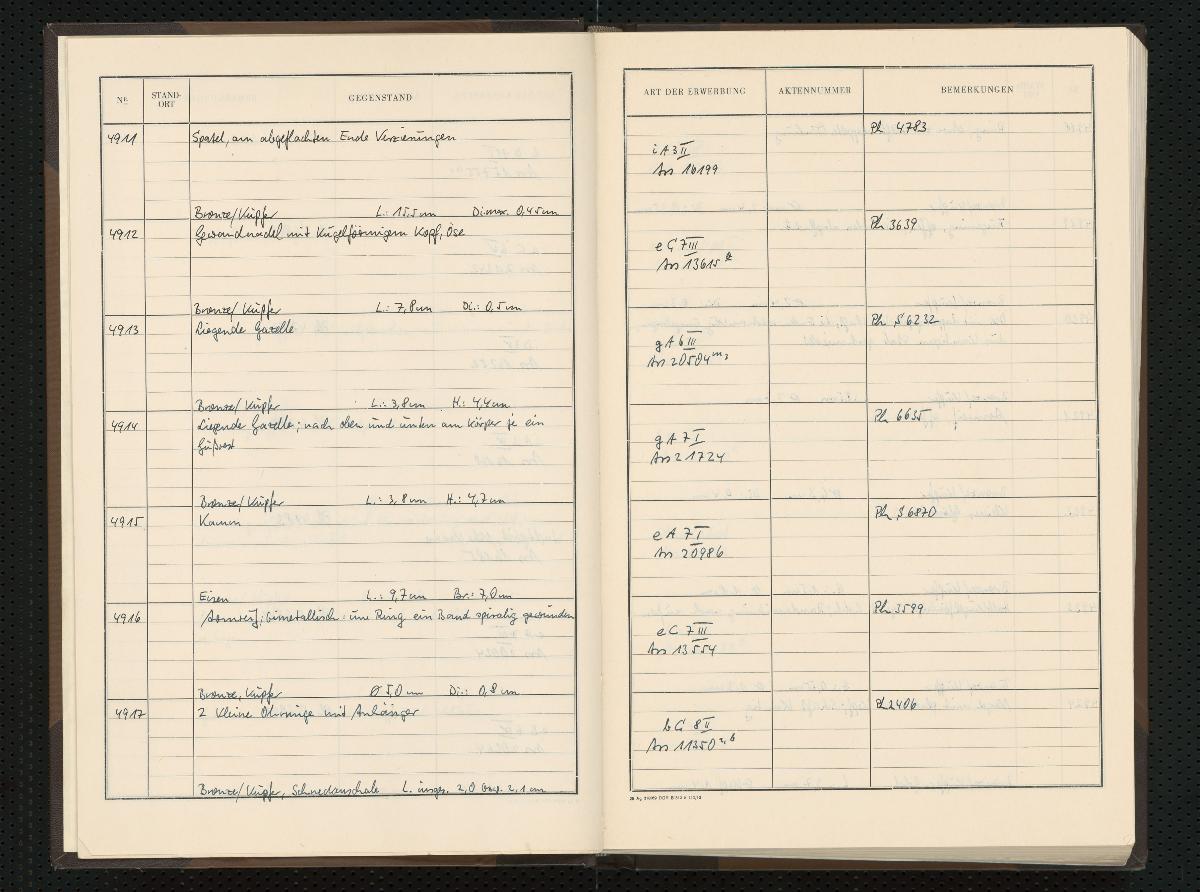 Nr.
STAND-
ORT
GEGENSTAND
4911
Spatel, am abgeflachten Ende Verzierungen
Bronze/Kupfer L.: 15,5 cm Di.max. 0,45 cm
4912
Gewandnadel mit kugelförmigem Kopf, Öse
Bronze/Kupfer L.: 7,8 cm Di.: 0,5 cm
4913
Liegende Gazelle
Bronze/Kupfer L.: 3,8 cm H.: 4,4 cm
4914
Liegende Gazelle; nach oben und unten am Körper je ein
Gußrest
Bronze/Kupfer L.: 3,8 cm H.: 4,7 cm
4915
Kamm
Eisen L.: 9,7 cm Br.: 7,0 cm
4916
Armreif; bimetallisch: um Ring ein Band spiralig gewunden
Bronze, Kupfer Ø 5,0 cm Di.: 0,8 cm
4917
2 kleine Ohrringe mit Anhänger
Bronze/Kupfer, Schneckenschale L. insges. 2,0 bzw. 2,1 cm
ART DER ERWERBUNG
AKTENNUMMER
BEMERKUNGEN
Ph 4783
i A 3 II
Ass 16199
Ph 3639
e C 7 III
Ass 13615
Ph S 6232
g A 6 III
Ass 20504
Ph 6635
g A 7 I
Ass 21724
Ph S 6870
e A 7 I
Ass 20986
Ph 3599
e C 7 III
Ass 13554
Ph 2406
b C 8 II
Ass 11350 a, b